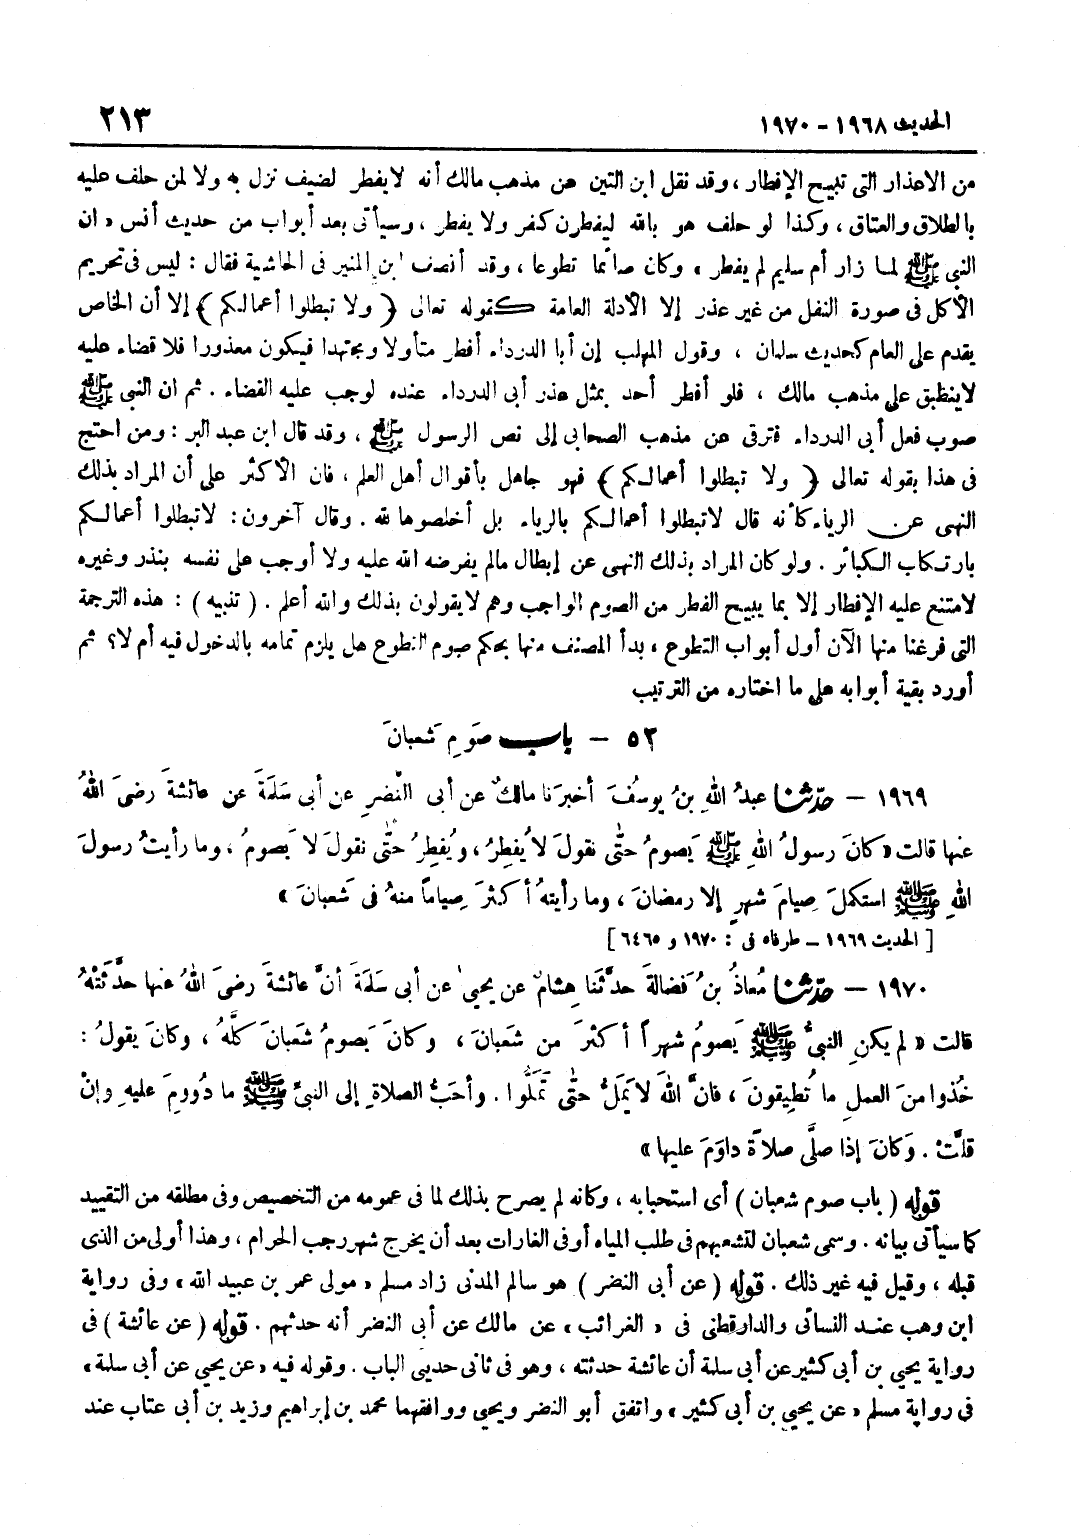 الحديث ١٩٦٨ - ١٩٧٠
٢١٣
من الاعذار التى تبيح الإفطار ، وقد نقل ابن التين عن مذهب مالك أنه لا يفطر لضيف نزل به ولا لمن حلف عليه
بالطلاق والعتاق ، وكذا لو حلف هو بالله ليفطرن كفر ولا يفطر ، وسيأتى بعد أبواب من حديث أنس « ان
النبى ﷺ لما زار أم سليم لم يفطر » وكان صائما تطوعا ، وقد أنصف ابن المنير فى الحاشية فقال : ليس فى تحريم
الأكل فى صورة النفل من غير عذر إلا الأدلة العامة كقوله تعالى ( ولا تبطلوا أعمالكم ) إلا أن الخاص
يقدم على العام كحديث سلمان ، وقول المهلب إن أبا الدرداء أفطر متأولا ومجتهدا فيكون معذورا فلا قضاء عليه
لاينطبق على مذهب مالك ، فلو أفطر أحد بمثل عذر أبى الدرداء عنده لوجب عليه القضاء . ثم ان النبى ﷺ
صوب فعل أبى الدرداء فترقى عن مذهب الصحابى إلى نص الرسول ﷺ ، وقد قال ابن عبد البر : ومن احتج
فى هذا بقوله تعالى ( ولا تبطلوا أعمالكم ) فهو جاهل بأقوال أهل العلم ، فان الأكثر على أن المراد بذلك
النهى عن الرياء كأنه قال لاتبطلوا أعمالكم بالرياء بل أخلصوها لله . وقال آخرون : لاتبطلوا أعمالكم
بارتكاب الكبائر . ولو كان المراد بذلك النهى عن إبطال مالم يفرضه الله عليه ولا أوجب على نفسه بنذر وغيره
لامتنع عليه الإفطار إلا بما يبيح الفطر من الصوم الواجب وهم لايقولون بذلك والله أعلم . ( تنبيه ) : هذه الترجمة
التى فرغنا منها الآن أول أبواب التطوع ، بدأ المصنف منها بحكم صوم التطوع هل يلزم تمامه بالدخول فيه أم لا؟ ثم
أورد بقية أبوابه على ما اختاره من الترتيب
٥٢ - باب صَومِ شعبانَ
١٩٦٩ - حدّثنا عبدُ اللهِ بنُ يوسُفَ أخبرَنا مالكٌ عن أبى النَّضرِ عن أبى سَلمَةَ عن عائشةَ رضىَ اللهُ
عنها قالت « كانَ رسولُ اللهِ ﷺ يَصومُ حتَّى نقولَ لا يُفطِرُ ، ويُفطِرُ حتَّى نقولَ لا يَصومُ ، وما رأيتُ رسولَ
اللهِ ﷺ استكملَ صِيامَ شهرٍ إلا رمضانَ ، وما رأيتهُ أكثرَ صِياماً منهُ فى شَعبانَ »
[ الحديث ١٩٦٩ - طرفاه فى : ١٩٧٠ و ٦٤٦٥ ]
١٩٧٠ - حدّثنا مُعاذُ بنُ فَضالةَ حدَّثَنا هِشامٌ عن يحيىٰ عن أبى سَلمَةَ أنَّ عائشةَ رضىَ اللهُ عنها حدَّثَتْهُ
قالت « لم يكنِ النبىُّ ﷺ يَصومُ شهراً أكثرَ من شَعبانَ ، وكانَ يَصومُ شَعبانَ كلَّهُ ، وكانَ يقولُ :
خُذوا منَ العملِ ما تُطِيقونَ ، فانَّ اللهَ لا يَملُّ حتَّى تَملُّوا . وأحَبُّ الصلاةِ إلى النبىِّ ﷺ ما دُووِمَ عليهِ وإنْ
قلَّتْ . وَكانَ إذا صلَّى صلاةً داوَمَ عليها »
قوله ( باب صوم شعبان ) أى استحبابه ، وكأنه لم يصرح بذلك لما فى عمومه من التخصيص وفى مطلقه من التقييد
كما سيأتى بيانه . وسمى شعبان لتشعبهم فى طلب المياه أو فى الغارات بعد أن يخرج شهر رجب الحرام ، وهذا أولى من الذى
قبله ، وقيل فيه غير ذلك . قوله ( عن أبى النضر ) هو سالم المدنى زاد مسلم « مولى عمر بن عبيد الله » وفى رواية
ابن وهب عند النسائى والدارقطنى فى « الغرائب » عن مالك عن أبى النضر أنه حدثهم . قوله ( عن عائشة ) فى
رواية يحيى بن أبى كثير عن أبى سلمة أن عائشة حدثته ، وهو فى ثانى حديثى الباب . وقوله فيه « عن يحيى عن أبى سلمة »
فى رواية مسلم « عن يحيى بن أبى كثير » واتفق أبو النضر ويحيى ووافقهما محمد بن إبراهيم وزيد بن أبى عتاب عند